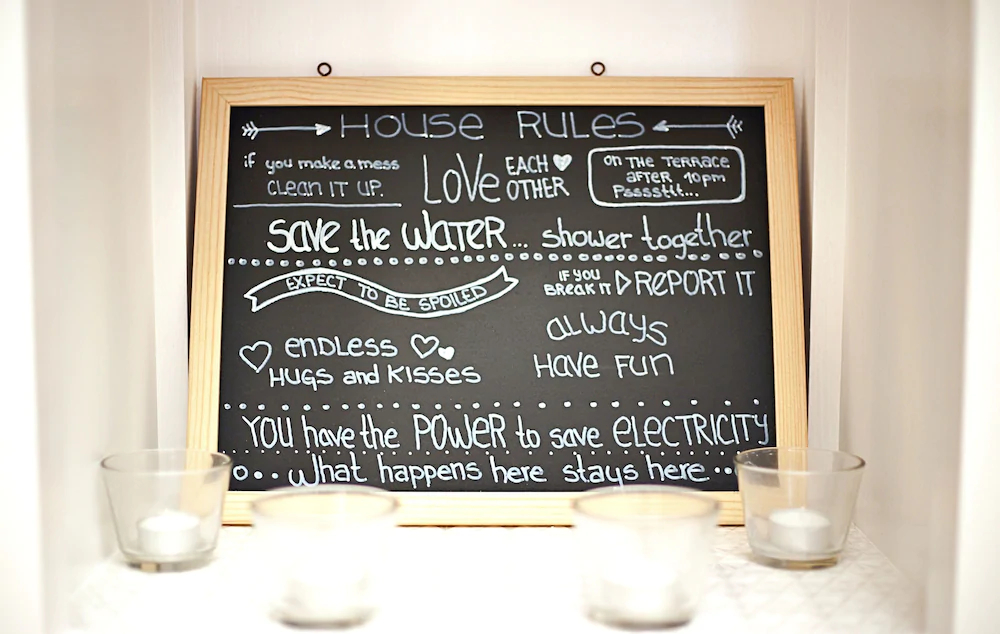 HOUSE RULES
if you make a mess
CLEAN IT UP.
LOVE EACH OTHER
ON THE TERRACE
AFTER 10pm
Pssssttt...
SAVE the WATER... shower together
EXPECT TO BE SPOILED
IF YOU
BREAK IT REPORT IT
ENDLESS
HUGS and KISSES
ALWAYS
HAVE FUN
YOU have the POWER to save ELECTRICITY
What happens here stays here